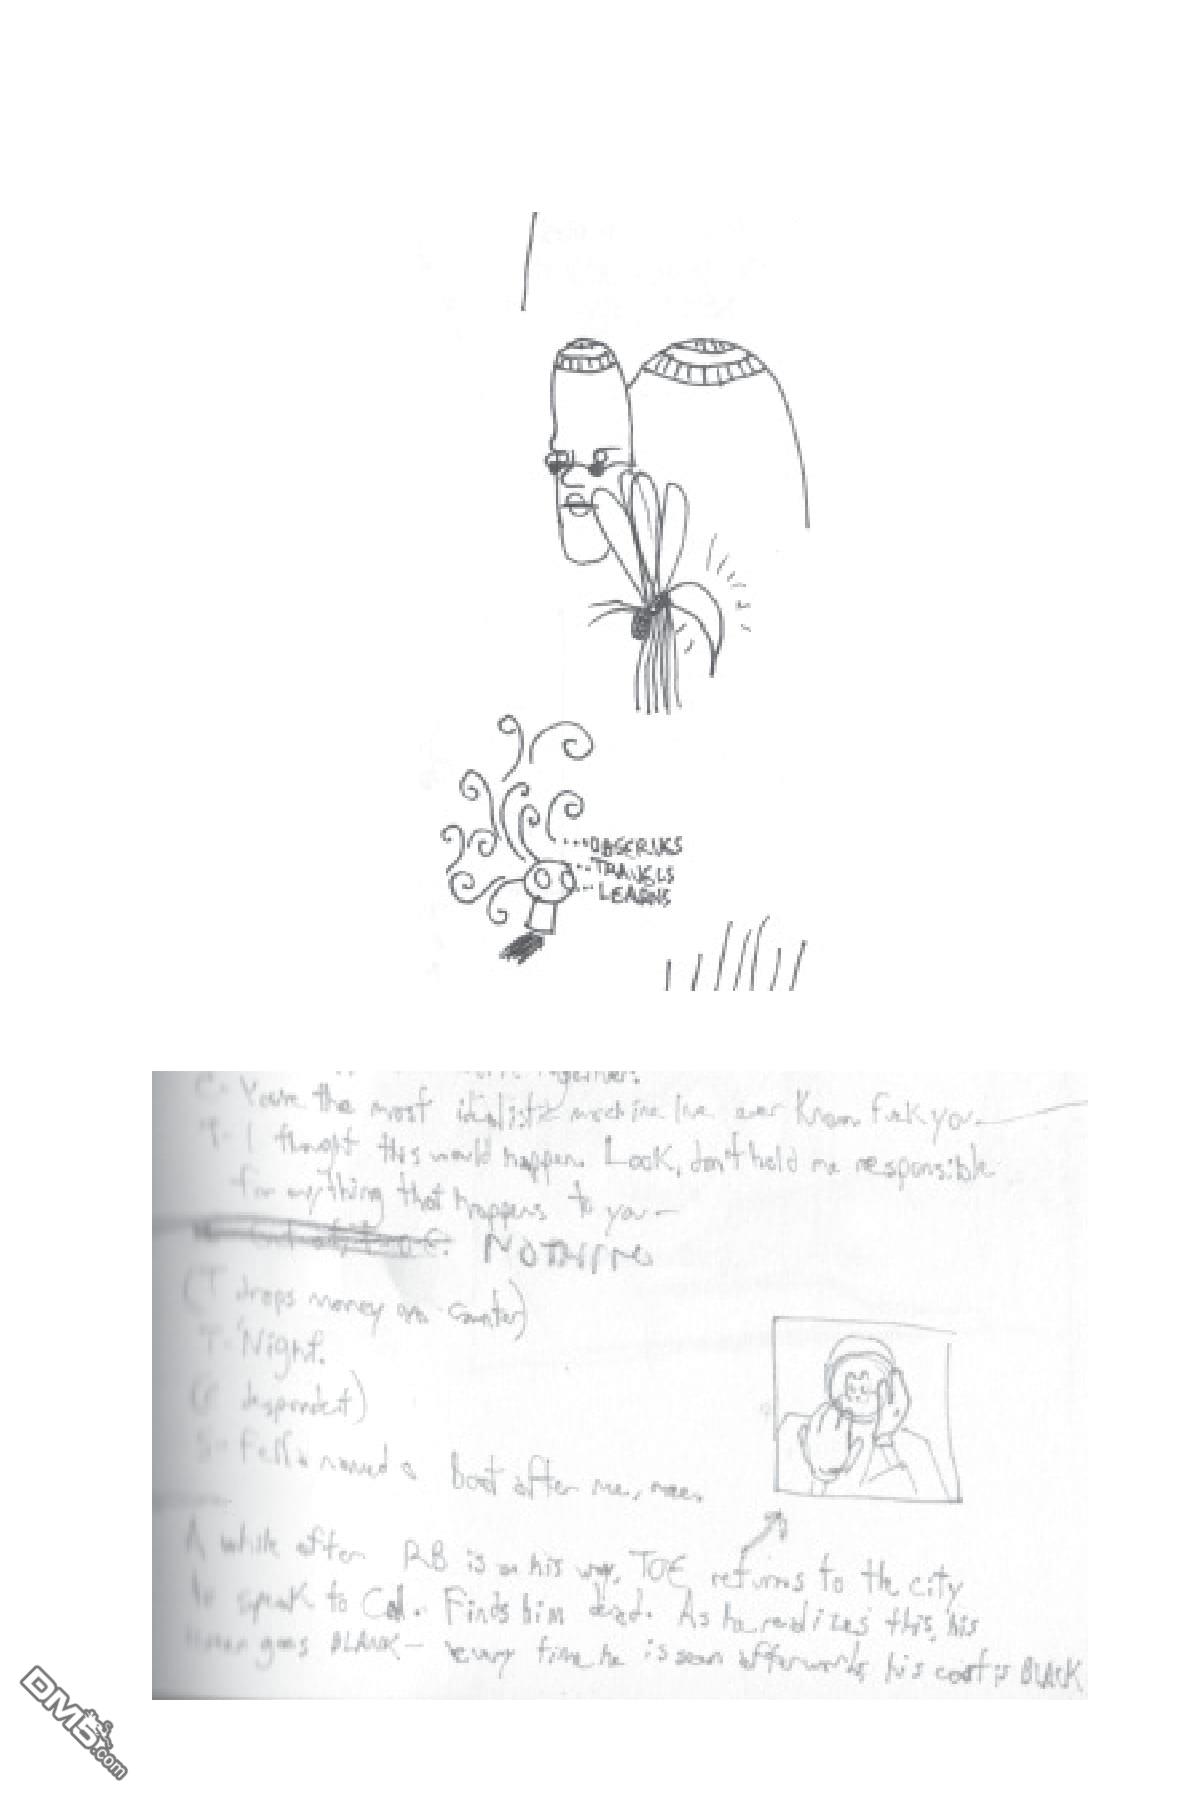 ...OBSERVES
...TRAVELS
...LEARNS
together.
C- You're the most idealistic machine I've ever known fuck you—
T- I thought this would happen. Look, don't hold me responsible
for anything that happens to you—
NOTHING
(T drops money on counter)
T- 'Night.
despondent)
S- Fella named a boat after me, once.
A while after RB is on his way, TOE returns to the city
to speak to Col. Finds him dead. As he realizes this, his
goes BLANK— every time he is seen afterwards, his coat is BLACK
DMS.com